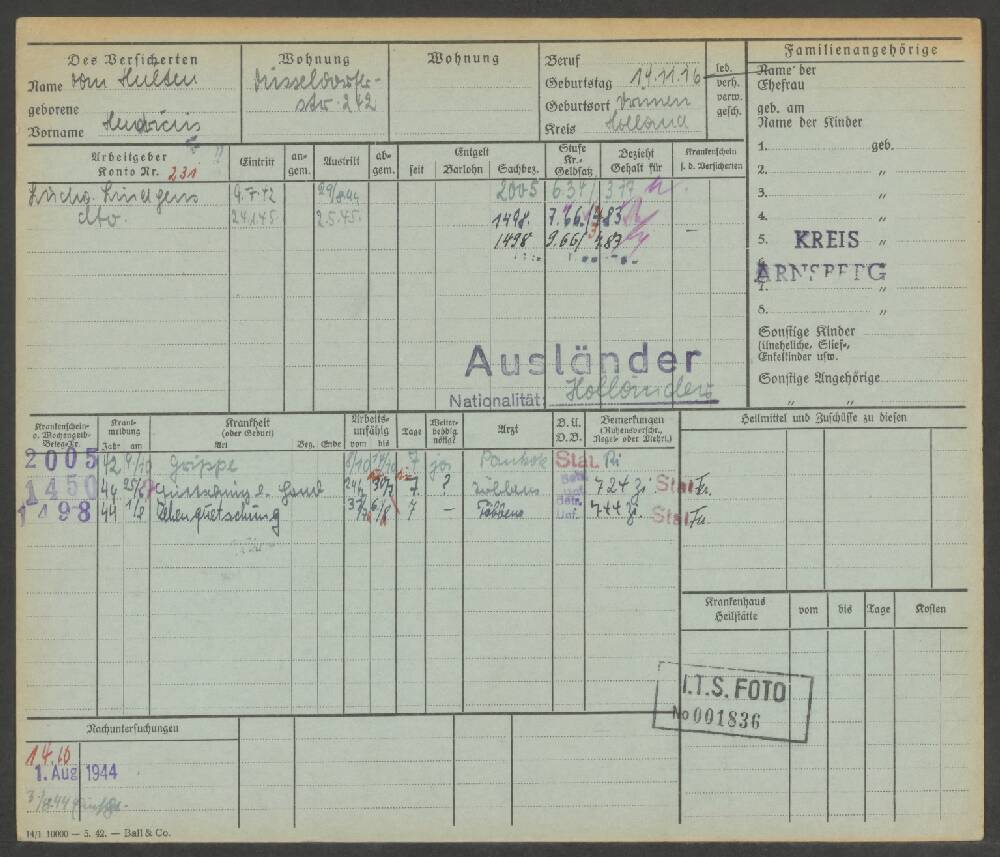 Des Versicherten
Name von Hulsen
geborene
Vorname Hendricus
Wohnung
Düsseldorfer-
str. 242
Wohnung
Beruf
Geburtstag 14.11.16
Geburtsort
Kreis Holland
led.
verh.
verw.
gesch.
Familienangehörige
Name der
Ehefrau
geb. am
Name der Kinder
1. geb.
2. "
3. "
4. "
5. "
6. "
7. "
8. "
KREIS
ARNSBERG
Sonstige Kinder
(Uneheliche, Stief-,
Enkelkinder usw.
Sonstige Angehörige
" "
Arbeitgeber
Konto Nr. 231
Eintritt
an-
gem.
Austritt
ab-
gem.
Entgelt
seit Barlohn Sachbez.
Stufe
Kr.-
Geldsatz
Bezieht
Gehalt für
Krankenschein
f. d. Versicherten
2005 6.37/ 317
dto. 24.1.45. 2.5.45. 1498. 7.26/ 483
1498 9.66/ 487 –
Ausländer
Nationalität: Holländer
Krankenschein-
o. Wochengeld-
Beleg-Nr.
Krank-
meldung
Jahr am
Krankheit
(oder Geburt)
Art Beg. Ende
Arbeits-
unfähig
vom bis
Tage
Weiter-
behdlg.
nötig?
Arzt
B.U.
D.B.
Bemerkungen
(Ruhensvorsch.,
Reges- oder Mehrl.)
2005 42 9/10 Grippe 8/10 14/10 7 ja Stat.
1450 44 25/7 Hand 24/7 30/7 7. ? Betr. Unf. 724 Stat
1498 44 1/8 Zehenquetschung 31/7 6/8 7 – Többens Betr. Unf. 744 Stat
Heilmittel und Zuschüsse zu diesen
Krankenhaus
Heilstätte
vom bis Tage Kosten
I.T.S. FOTO
No 001836
Nachuntersuchungen
1. Aug 1944
14/1 10000 — 5. 42. — Ball & Co.